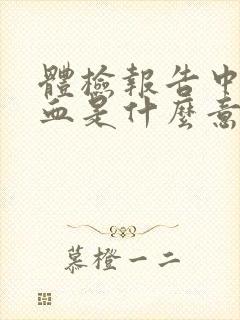 體檢報告中
血是什麼意
慕橙一二